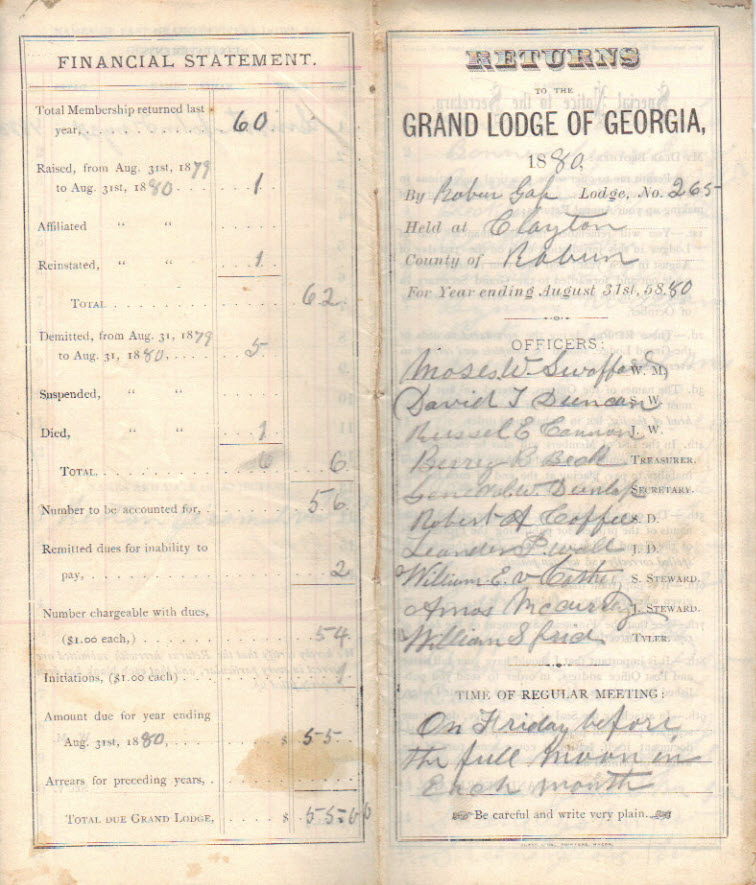 FINANCIAL STATEMENT.
Total Membership returned last
year, 60
Raised, from Aug. 31st, 1879
to Aug. 31st, 1880 1
Affiliated " "
Reinstated, " " 1
TOTAL 62
Demitted, from Aug. 31, 1879
to Aug. 31, 1880 5
Suspended, " "
Died, " " 1
TOTAL. 6 6
Number to be accounted for, 56
Remitted dues for inability to
pay, 2
Number chargeable with dues,
($1.00 each,) 54
Initiations, ($1.00 each) 1
Amount due for year ending
Aug. 31st, 1880, $ 55
Arrears for preceding years,
TOTAL DUE GRAND LODGE, $ 55
RETURNS
TO THE
GRAND LODGE OF GEORGIA,
1880.
By Rabun Gap Lodge, No. 265
Held at Clayton
County of Rabun
For Year ending August 31st, 5880
OFFICERS:
Moses W. Swafford W. M.
David T Duncan S. W.
Russel E Cannon J. W.
Beck TREASURER.
W. Dunlap SECRETARY.
Robert A Coffee S. D.
Leander P. wall J. D.
William E S. STEWARD.
Amos Mc J. STEWARD.
William S TYLER.
TIME OF REGULAR MEETING:
On Friday before
the full moon in
Each month
Be careful and write very plain.